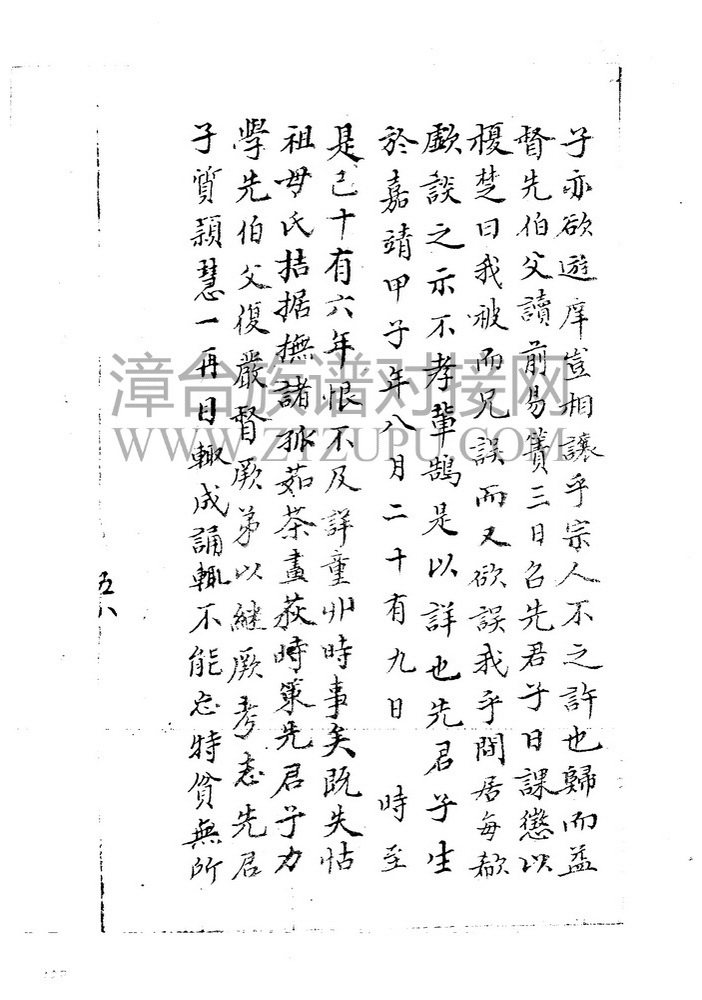 子亦欲遊庠豈相讓乎宗人不之許也歸而益
督先伯父讀前易簀三日召先君子日課懲以
榎楚曰我被而兄誤而又欲誤我乎間居每欷
歔談之示不孝輩鵠是以詳也先君子生
於嘉靖甲子年八月二十有九日 時至
是已十有六年恨不及詳童丱時事矣既失怙
祖母氏拮据撫諸孤茹荼畫荻時策先君子力
學先伯父復嚴督厥弟以繼厥考志先君
子質穎慧一再目輒成誦輒不能忘特貧無所
五八
漳台族谱对接网
WWW.ZTZUPU.COM